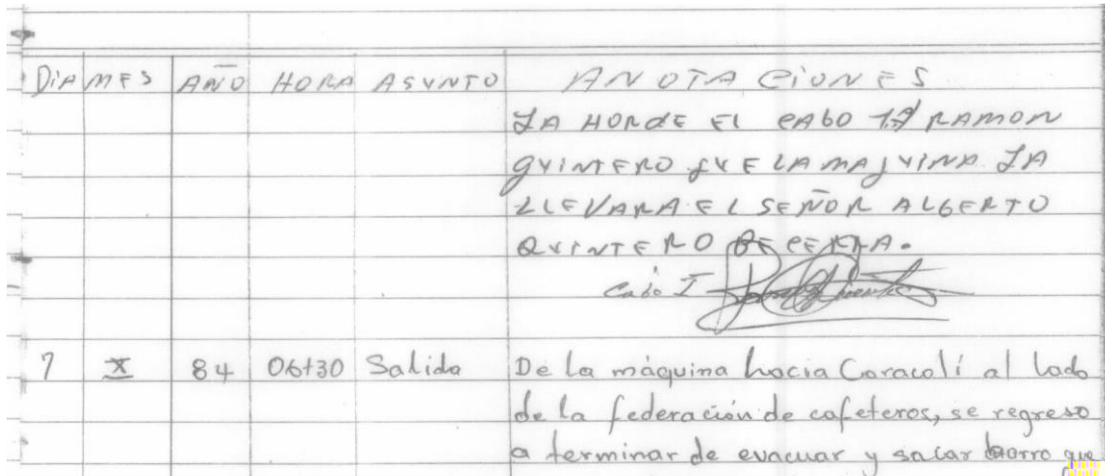 DIA MES AÑO HORA ASUNTO ANOTACIONES
LA HORDE EL CABO 1º RAMON
QUINTERO QUE LA MAQUINA LA
LLEVARA EL SEÑOR ALBERTO
QUINTERO BECERRA.
Cabo I
7 X 84 06+30 Salida De la máquina hacia Caracolí al lado
de la federación de cafeteros, se regreso
a terminar de evacuar y sacar barro que